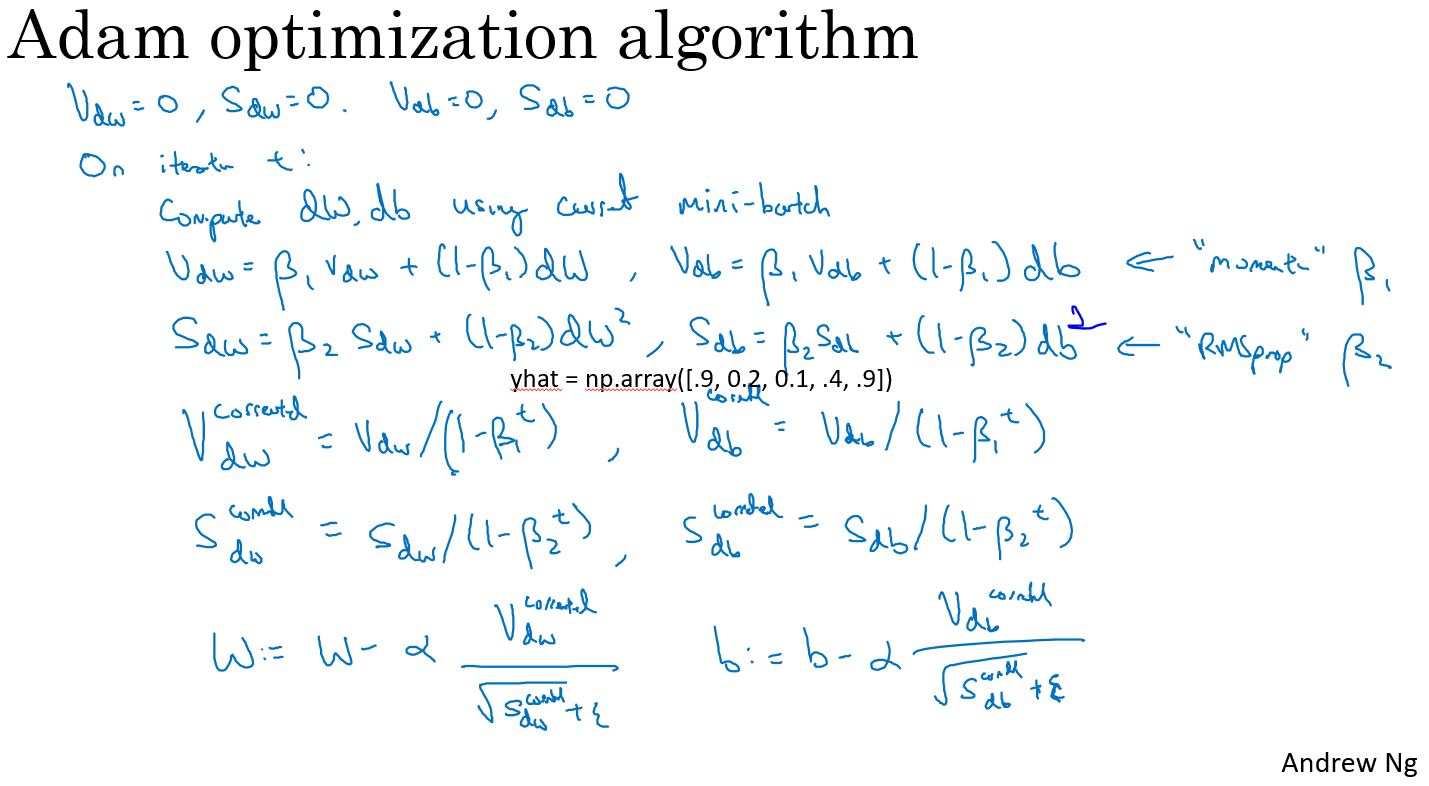 Adam optimization algorithm
V_dw = 0, S_dw = 0. V_db = 0, S_db = 0
On iteratn t:
Compute dW, db using current mini-batch
V_dw = β₁ V_dw + (1-β₁) dW , V_db = β₁ V_db + (1-β₁) db ← "momentu" β₁
S_dw = β₂ S_dw + (1-β₂) dW² , S_db = β₂ S_db + (1-β₂) db² ← "RMSprop" β₂
yhat = np.array([.9, 0.2, 0.1, .4, .9])
V_dw^corrected = V_dw/(1-β₁^t) , V_db^corrected = V_db/(1-β₁^t)
S_dw^corrected = S_dw/(1-β₂^t) , S_db^corrected = S_db/(1-β₂^t)
W := W - α V_dw^corrected / (√S_dw^corrected + ε) b := b - α V_db^corrected / (√S_db^corrected + ε)
Andrew Ng